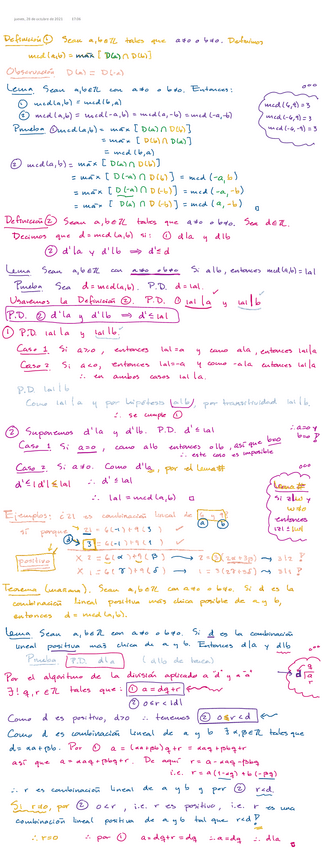 jueves, 19 de octubre de 2023 17:06
Definición ① Sean a,b∈ℤ tales que a≠0 o b≠0. Definimos
mcd(a,b) = máx [D(a) ∩ D(b)]
Observación D(a) = D(-a)
Lema Sean a,b∈ℤ con a≠0 o b≠0. Entonces:
① mcd(a,b) = mcd(b,a)
② mcd(a,b) = mcd(-a,b) = mcd(a,-b) = mcd(-a,-b)
mcd(6,9)=3
mcd(-6,9)=3
mcd(-6,-9)=3
Prueba ① mcd(a,b) = máx [D(a) ∩ D(b)]
= máx [D(b) ∩ D(a)]
= mcd(b,a)
② mcd(a,b) = máx [D(a) ∩ D(b)]
= máx [D(-a) ∩ D(b)] = mcd(-a,b)
= máx [D(-a) ∩ D(-b)] = mcd(-a,-b)
= máx [D(a) ∩ D(-b)] = mcd(a,-b) □
Definición ② Sean a,b∈ℤ tales que a≠0 o b≠0. Sea d∈ℤ.
Decimos que d=mcd(a,b) si: ① d|a y d|b
② d'|a y d'|b ⟹ d'≤d
Lema Sean a,b∈ℤ con a≠0 o b≠0. Si a|b, entonces mcd(a,b)=|a|
Prueba Sea d=mcd(a,b). P.D. d=|a|.
Usaremos la Definición ②. P.D. ① |a| |a y |a| |b
P.D. ② d'|a y d'|b ⟹ d'≤|a|
① P.D. |a| |a y |a| |b
Caso 1 Si a>0, entonces |a|=a y como a|a, entonces |a| |a
Caso 2 Si a<0, entonces |a|=-a y como -a|a entonces |a| |a
∴ en ambos casos |a| |a.
P.D. |a| |b
Como |a| |a y por hipótesis a|b, por transitividad |a| |b
∴ se cumple ①
② Suponemos d'|a y d'|b. P.D. d'≤|a|
Caso 1 Si a=0, como a|b entonces 0|b, así que b=0
∴ este caso es imposible
∴ a=0 y b=0 !
Caso 2 Si a≠0. Como d'|a, por el Lema#
d'≤|d'|≤|a| ∴ d'≤|a|
∴ |a|=mcd(a,b) □
Lema#
si z|w y
w≠0
entonces
|z|≤|w|
Ejemplos: ¿21 es combinación lineal de 6 y 9?
a b
sí porque
3 = 6(-1)+9(1) ✓
positivo
Teorema (mañana). Sean a,b∈ℤ con a≠0 o b≠0. Si d es la
combinación lineal positiva más chica posible de a y b,
entonces d=mcd(a,b).
Lema Sean a,b∈ℤ con a≠0 o b≠0. Si d es la combinación
lineal positiva más chica de a y b. Entonces d|a y d|b
Prueba. P.D. d|a (d|b de tarea)
Por el algoritmo de la división aplicado a "d" y a "a"
∃! q,r∈ℤ tales que: ① a=dq+r
② 0≤r<|d|
Como d es positivo, d>0 ∴ tenemos ② 0≤r<d
Como d es combinación lineal de a y b ∃ α,β∈ℤ tales que
d=αa+βb. Por ① a=(αa+βb)q+r = αaq+βbq+r
así que a=αaq+βbq+r. De aquí r=a-αaq-βbq
i.e. r=a(1-αq)+b(-βq)
∴ r es combinación lineal de a y b y por ② r<d.
Si r≠0, por ② 0<r, i.e. r es positivo, i.e. r es una
combinación lineal positiva de a y b tal que r<d !
∴ r=0 ∴ por ① a=dq+r=dq ∴ a=dq ∴ d|a